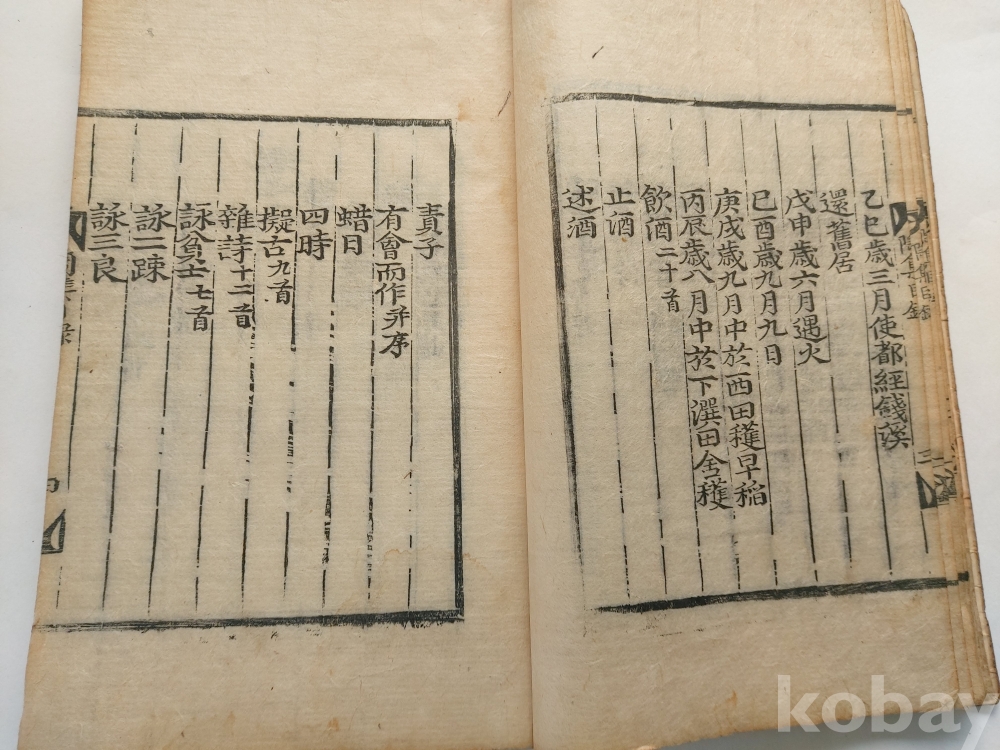 乙巳歲三月使都經錢溪
還舊居
戊申歲六月遇火
己酉歲九月九日
庚戌歲九月中於西田穫早稲
丙辰歲八月中於下潠田舍穫
飮酒二十首
止酒
述酒
責子
有會而作并序
蜡日
四時
擬古九首
雜詩十二首
詠貧士七首
詠二踈
詠三良
kobay